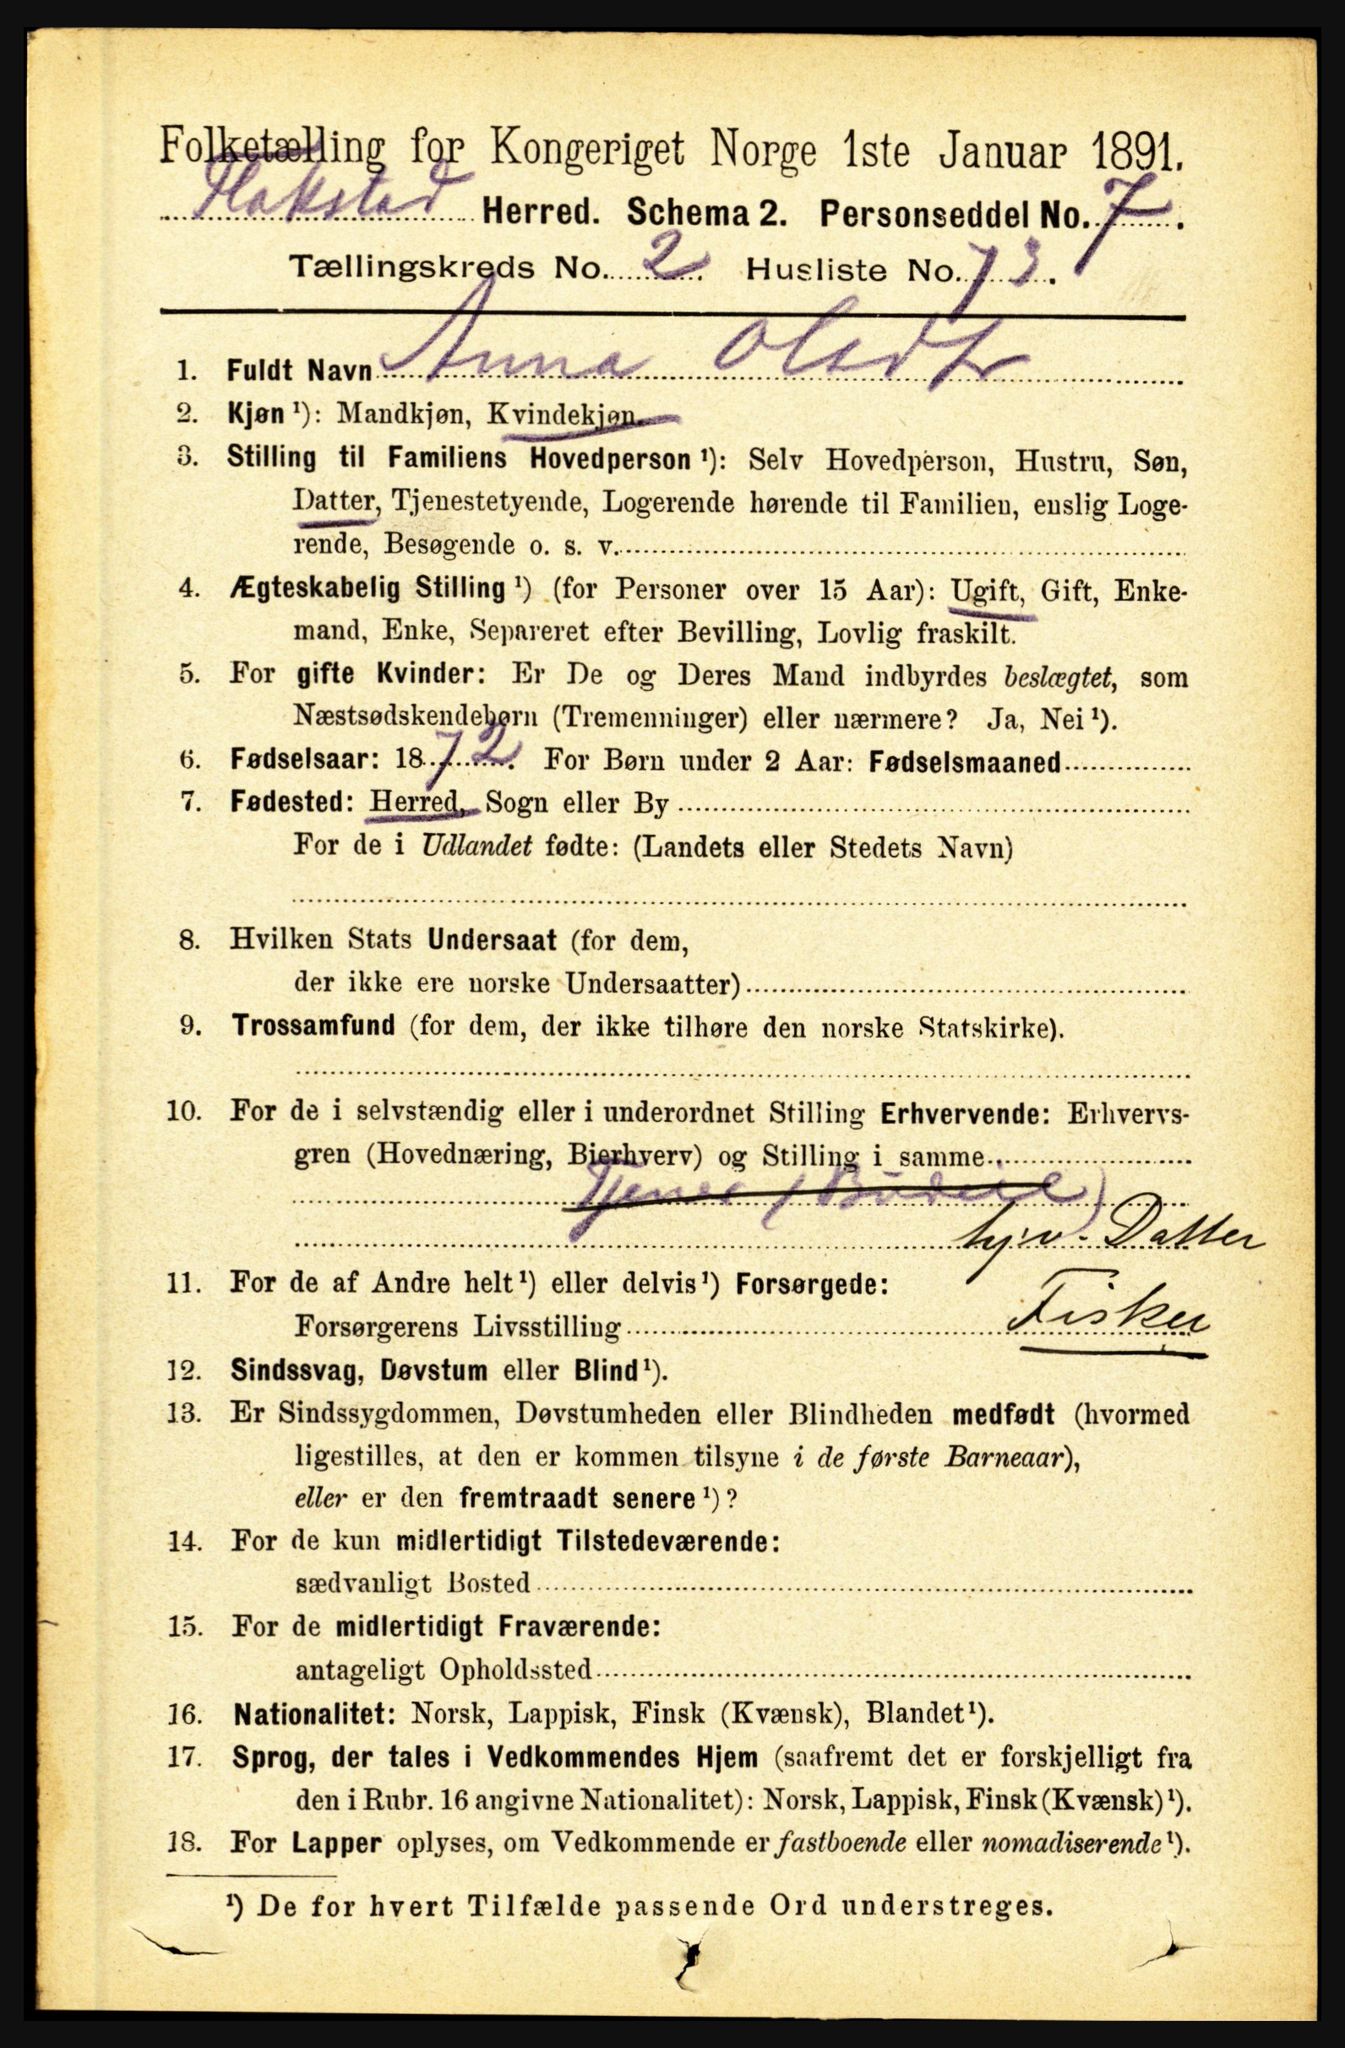 Folketælling for Kongeriget Norge 1ste Januar 1891.
Flakstad Herred. Schema 2. Personseddel No. 7.
Tællingskreds No. 2. Husliste No. 73.
1. Fuldt Navn Anna Olsdtr
2. Kjøn ¹): Mandkjøn, Kvindekjøn.
3. Stilling til Familiens Hovedperson ¹): Selv Hovedperson, Hustru, Søn,
Datter, Tjenestetyende, Logerende hørende til Familien, enslig Loge-
rende, Besøgende o. s. v.
4. Ægteskabelig Stilling ¹) (for Personer over 15 Aar): Ugift, Gift, Enke-
mand, Enke, Separeret efter Bevilling, Lovlig fraskilt.
5. For gifte Kvinder: Er De og Deres Mand indbyrdes beslægtet, som
Næstsødskendebørn (Tremenninger) eller nærmere? Ja, Nei ¹).
6. Fødselsaar: 1872. For Børn under 2 Aar: Fødselsmaaned
7. Fødested: Herred, Sogn eller By
For de i Udlandet fødte: (Landets eller Stedets Navn)
8. Hvilken Stats Undersaat (for dem,
der ikke ere norske Undersaatter)
9. Trossamfund (for dem, der ikke tilhøre den norske Statskirke).
10. For de i selvstændig eller i underordnet Stilling Erhvervende: Erhvervs-
gren (Hovednæring, Bierhverv) og Stilling i samme
Tjener (Budeie)
hj.v. Datter
11. For de af Andre helt ¹) eller delvis ¹) Forsørgede:
Forsørgerens Livsstilling Fisker
12. Sindssvag, Døvstum eller Blind ¹).
13. Er Sindssygdommen, Døvstumheden eller Blindheden medfødt (hvormed
ligestilles, at den er kommen tilsyne i de første Barneaar),
eller er den fremtraadt senere ¹)?
14. For de kun midlertidigt Tilstedeværende:
sædvanligt Bosted
15. For de midlertidigt Fraværende:
antageligt Opholdssted
16. Nationalitet: Norsk, Lappisk, Finsk (Kvænsk), Blandet ¹).
17. Sprog, der tales i Vedkommendes Hjem (saafremt det er forskjelligt fra
den i Rubr. 16 angivne Nationalitet): Norsk, Lappisk, Finsk (Kvænsk) ¹).
18. For Lapper oplyses, om Vedkommende er fastboende eller nomadiserende ¹).
¹) De for hvert Tilfælde passende Ord understreges.